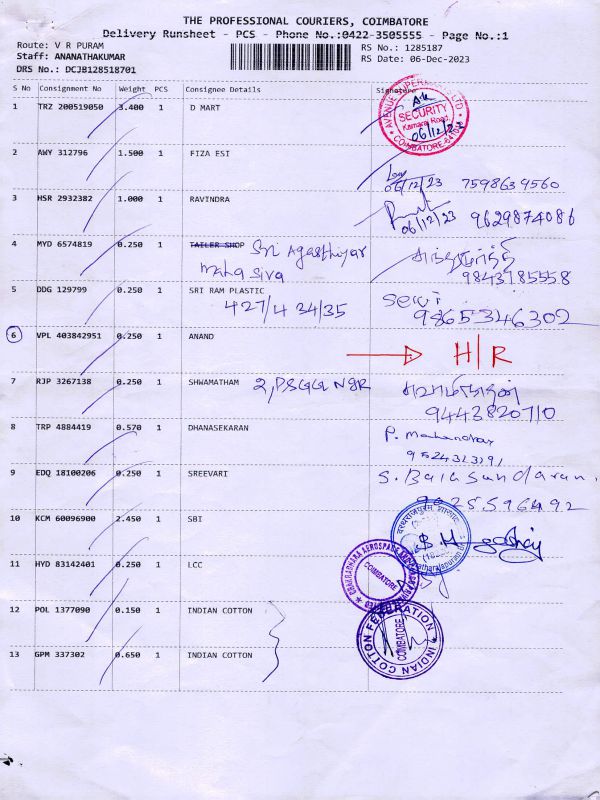 THE PROFESSIONAL COURIERS, COIMBATORE
Delivery Runsheet - PCS - Phone No.:0422-3505555 - Page No.:1
Route: V R PURAM
Staff: ANANATHAKUMAR
DRS No.: DCJB128518701
RS No.: 1285187
RS Date: 06-Dec-2023
S No Consignment No Weight PCS Consignee Details Signature
1 TRZ 200519050 3.400 1 D MART
SECURITY
Kamaraj Road
06/12/23
COIMBATORE
2 AWY 312796 1.500 1 FIZA ESI
06/12/23 7598639560
3 HSR 2932382 1.000 1 RAVINDRA
06/12/23 9629874086
4 MYD 6574819 0.250 1 TAILER SHOP Sri Agasthiyar
Maha Siva
9843785558
5 DDG 129799 0.250 1 SRI RAM PLASTIC
427/4 34/35
Selvi
9865346302
6 VPL 403842951 0.250 1 ANAND
H/R
7 RJP 3267138 0.250 1 SHWAMATHAM
9443820710
8 TRP 4884419 0.570 1 DHANASEKARAN
9 EDQ 18100206 0.250 1 SREEVARI
S. Balasundaram.
9025596492
10 KCM 60096900 2.450 1 SBI
11 HYD 83142401 0.250 1 LCC
COIMBATORE
12 POL 1377090 0.150 1 INDIAN COTTON
INDIAN COTTON FEDERATION
COIMBATORE
13 GPM 337302 0.650 1 INDIAN COTTON